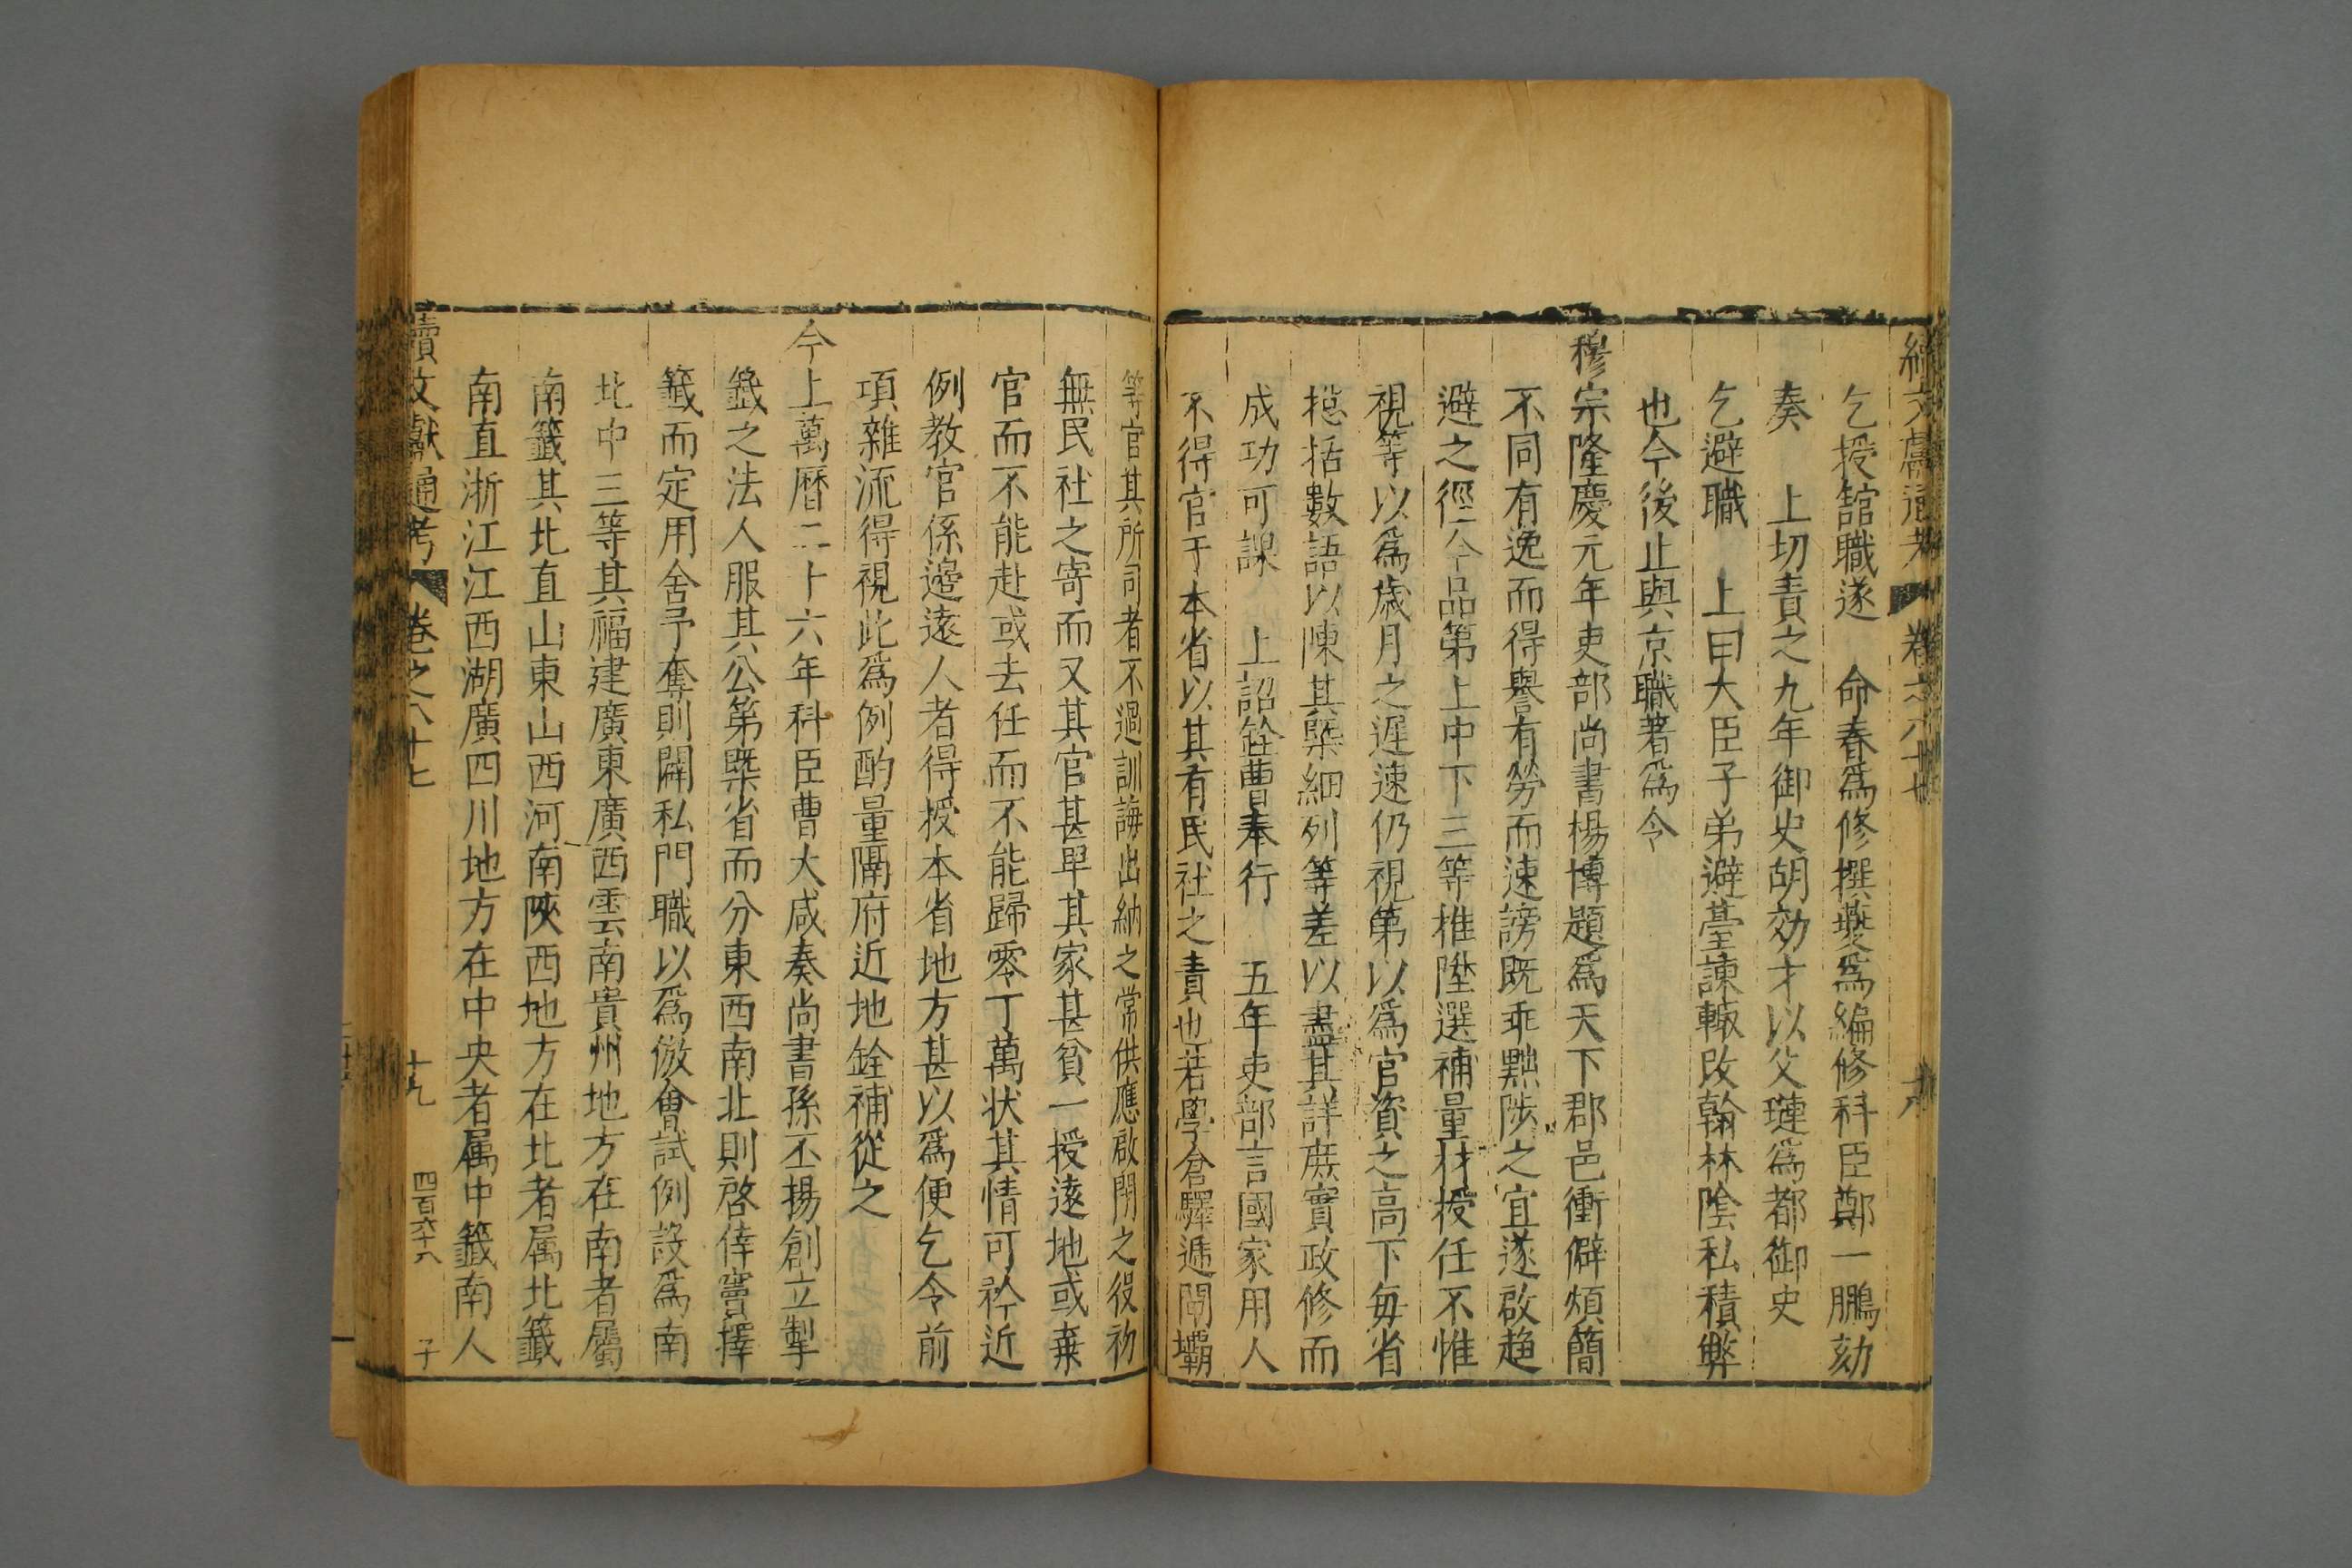 續文獻通考 卷之八十七 十八
乞授館職遂 命春爲修撰夔爲編修科臣鄭一鵬劾
奏 上切責之九年御史胡効才以父璉爲都御史
乞避職 上曰大臣子弟避臺諫輙改翰林陰私積弊
也今後止與京職著爲令
穆宗隆慶元年吏部尚書楊博題爲天下郡邑衝僻煩簡
不同有逸而得譽有勞而速謗既乖黜陟之宜遂啟趋
避之徑今品第上中下三等推陞選補量材授任不惟
視等以爲歳月之遲速仍視第以爲官資之高下每省
揔括數語以陳其槩細列等差以盡其詳庶實政修而
成功可課 上詔銓曹奉行 五年吏部言國家用人
不得官于本省以其有民社之責也若學倉驛遞閘壩
等官其所司者不過訓誨出納之常供應啟閉之役初
無民社之寄而又其官甚卑其家甚貧一授遠地或棄
官而不能赴或去任而不能歸零丁萬状其情可矜近
例教官係邊遠人者得授本省地方甚以爲便乞令前
項雜流得視此爲例酌量隔府近地銓補從之
今上萬曆二十六年科臣曹大咸奏尚書孫丕揚創立掣
籤之法人服其公第槩省而分東西南北則啓倖竇擇
籤而定用舍予奪則開私門職以爲倣會試例設爲南
北中三等其福建廣東廣西雲南貴州地方在南者屬
南籤其北直山東山西河南陝西地方在北者属北籤
南直浙江江西湖廣四川地方在中央者属中籤南人
續文獻通考 卷之八十七 十九 四百六十八 子